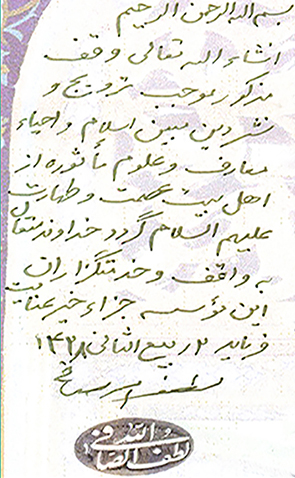 بسم الله الرحمن الرحیم
انشاء الله تعالی وقف
مذکور موجب ترویج و
نشر دین مبین اسلام و احیاء
معارف و علوم مأثوره از
اهل بیت عصمت و طهارت
علیهم السلام گردد خداوند متعال
به واقف و خدمتگزاران
این مؤسسه جزاء خیر عنایت
فرماید ۲ ربیع الثانی ۱۴۲۸
لطف الله صافی
لطف الله الصافی